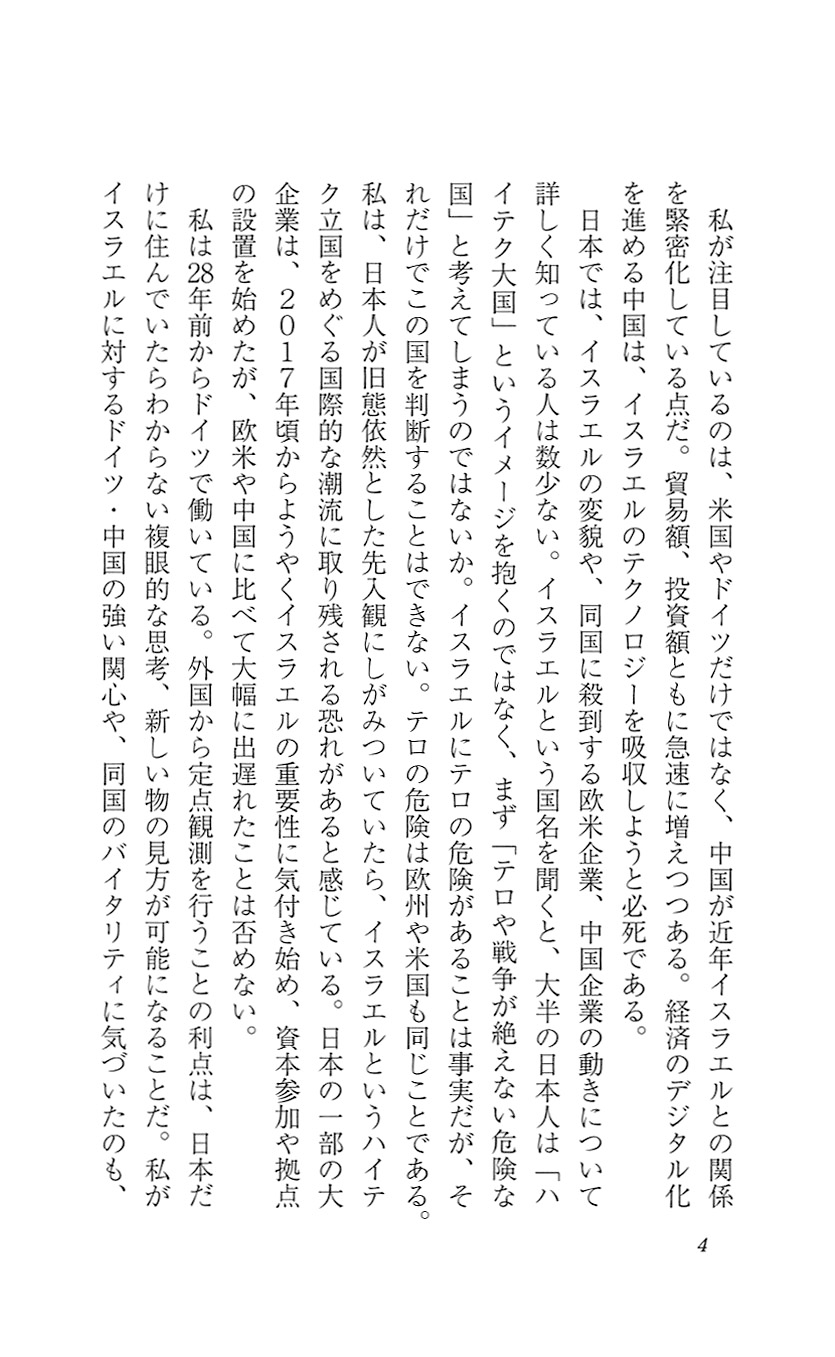 私が注目しているのは、米国やドイツだけではなく、中国が近年イスラエルとの関係
を緊密化している点だ。貿易額、投資額ともに急速に増えつつある。経済のデジタル化
を進める中国は、イスラエルのテクノロジーを吸収しようと必死である。
　日本では、イスラエルの変貌や、同国に殺到する欧米企業、中国企業の動きについて
詳しく知っている人は数少ない。イスラエルという国名を聞くと、大半の日本人は「ハ
イテク大国」というイメージを抱くのではなく、まず「テロや戦争が絶えない危険な
国」と考えてしまうのではないか。イスラエルにテロの危険があることは事実だが、そ
れだけでこの国を判断することはできない。テロの危険は欧州や米国も同じことである。
私は、日本人が旧態依然とした先入観にしがみついていたら、イスラエルというハイテ
ク立国をめぐる国際的な潮流に取り残される恐れがあると感じている。日本の一部の大
企業は、２０１７年頃からようやくイスラエルの重要性に気付き始め、資本参加や拠点
の設置を始めたが、欧米や中国に比べて大幅に出遅れたことは否めない。
　私は28年前からドイツで働いている。外国から定点観測を行うことの利点は、日本だ
けに住んでいたらわからない複眼的な思考、新しい物の見方が可能になることだ。私が
イスラエルに対するドイツ・中国の強い関心や、同国のバイタリティに気づいたのも、
4